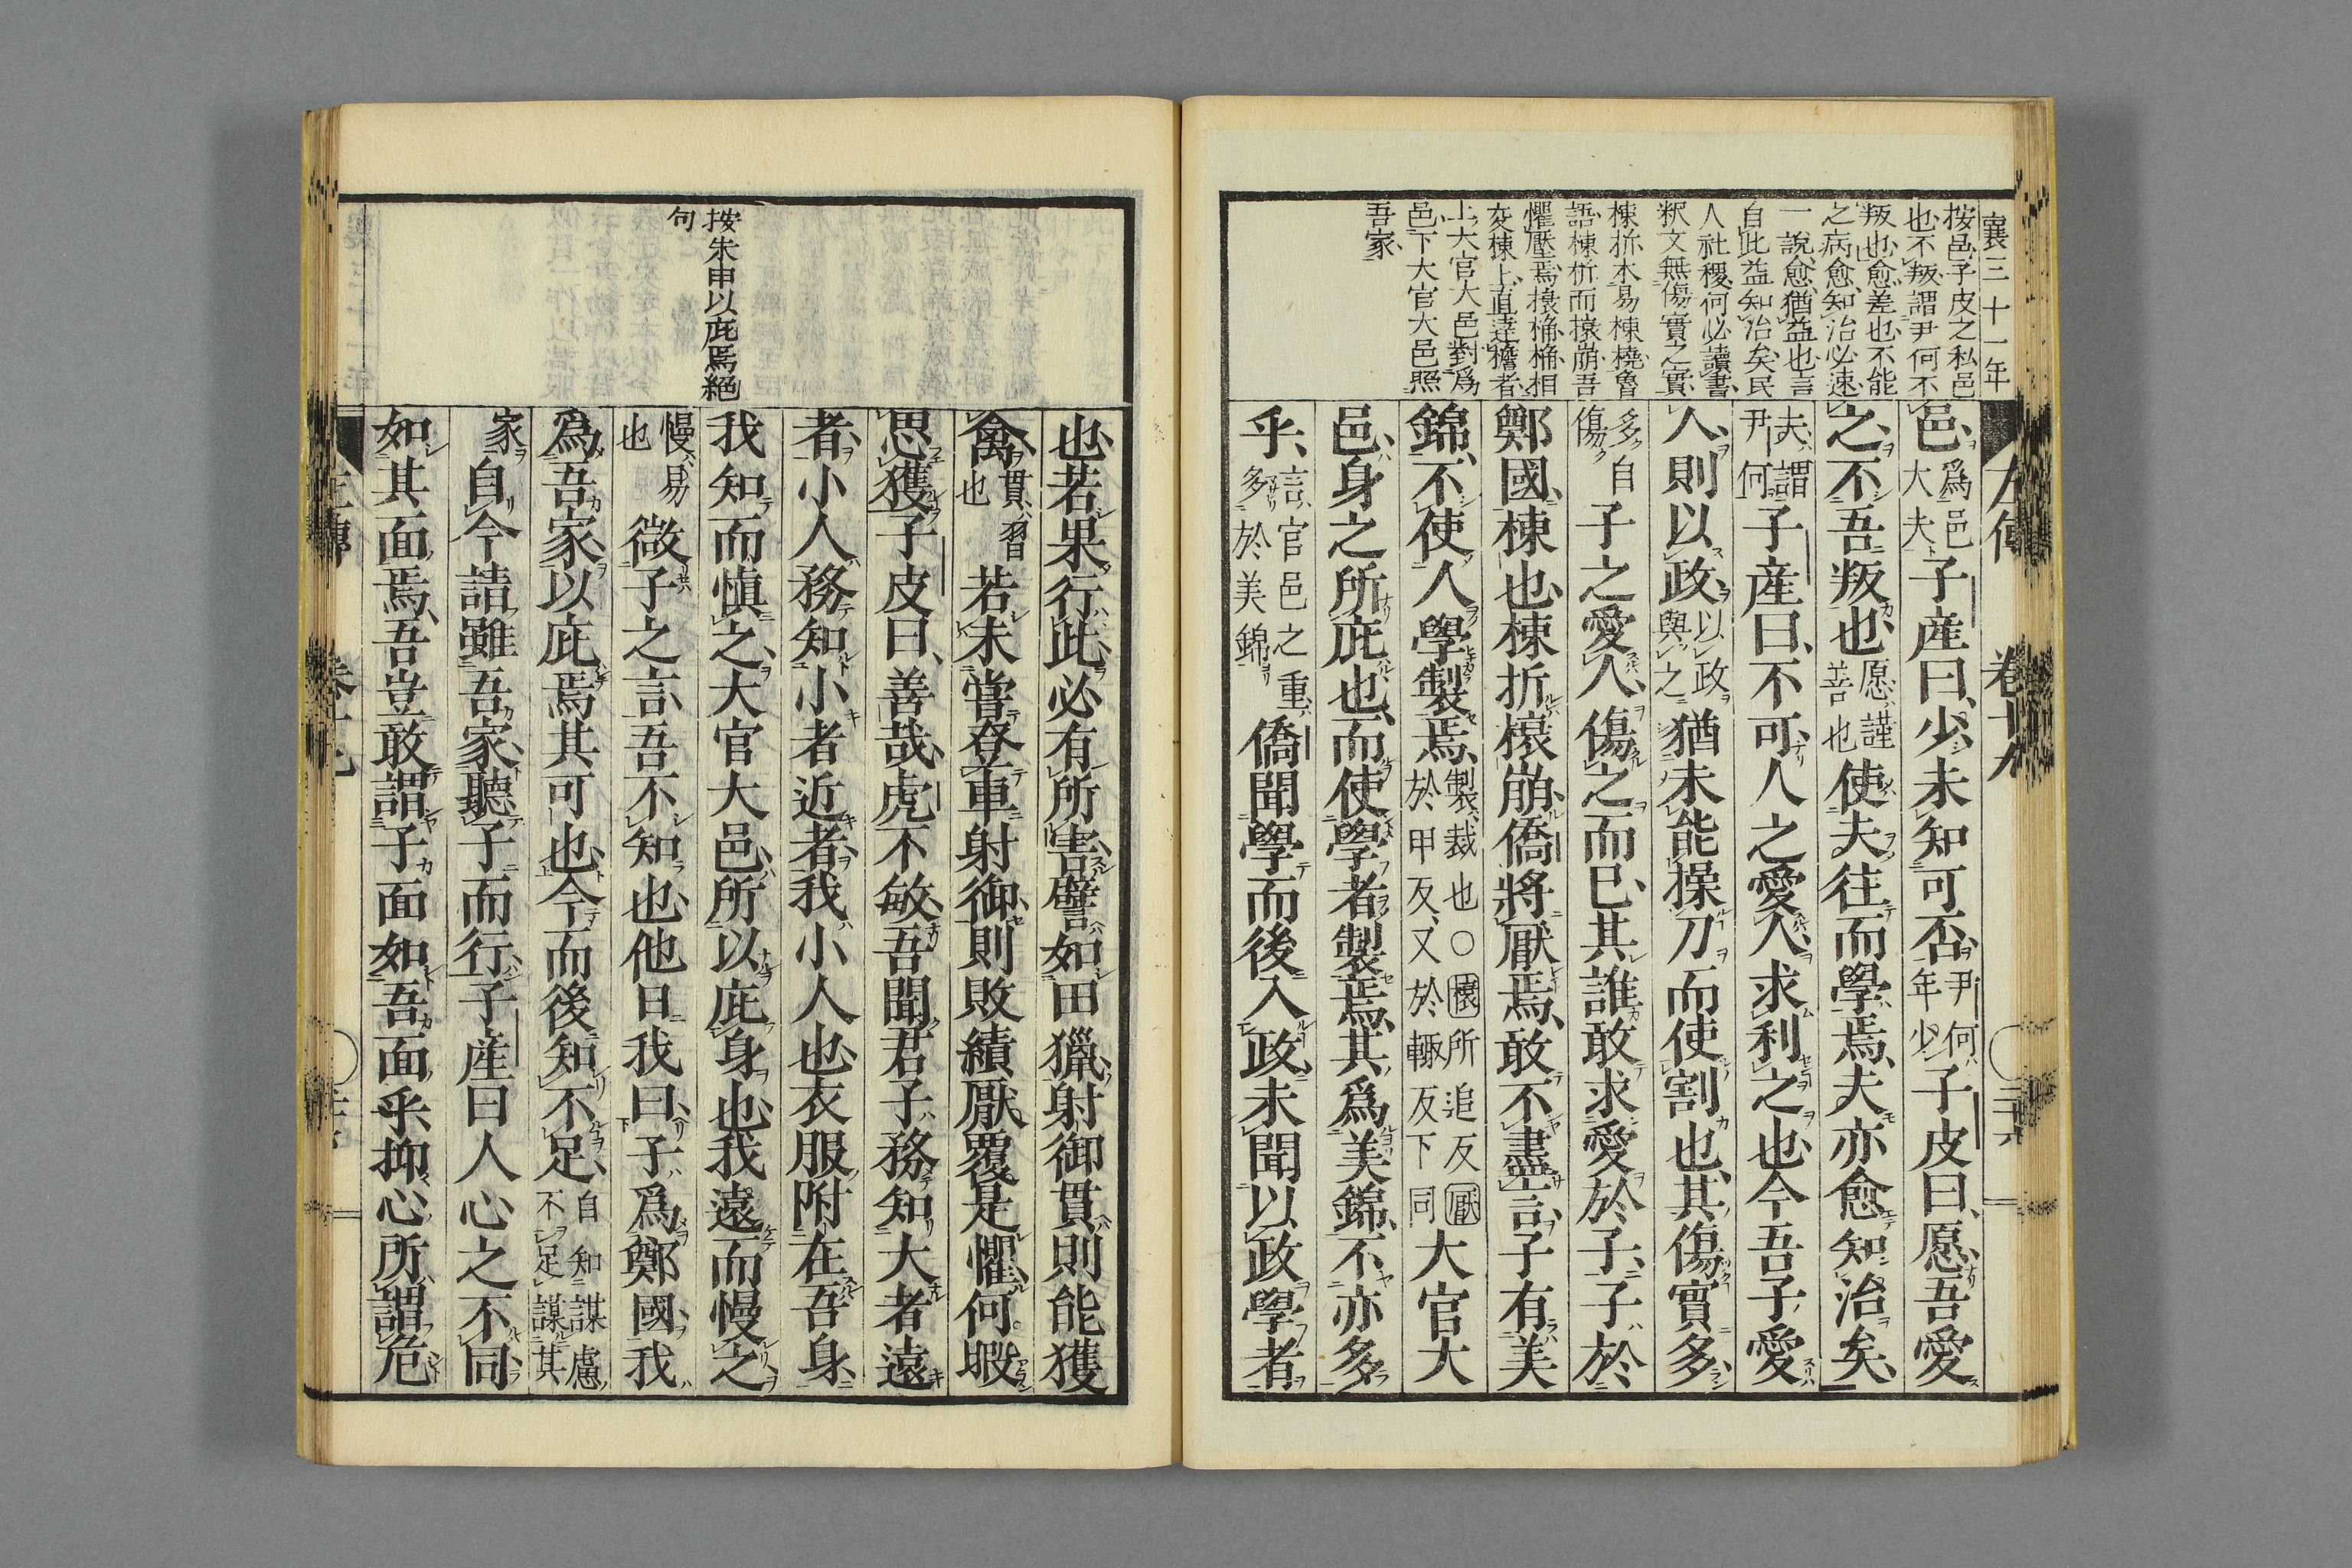 襄三十一年
按邑子皮之私邑
也不叛謂尹何不
叛也愈差也不能
之病愈知治必速
一説愈猶益也言
自此益知治矣民
人社稷何必讀書
釈文無傷實之實
棟折木易棟橈魯
語棟折而榱崩吾
懼壓焉榱桷桷相
交棟上直達檐者
上大官大邑對爲
邑下大官大邑照
吾家
邑爲邑大夫子産曰少未知可否尹何年少子皮曰愿吾愛
之不吾叛也愿謹善也使夫往而學焉夫亦愈知治矣
夫謂尹何子産曰不可人之愛人求利之也今吾子愛
人則以政以政與之猶未能操刀而使割也其傷實多
多自傷子之愛人傷之而已其誰敢求愛於子子於
鄭國棟也棟折榱崩僑將厭焉敢不盡言子有美
錦不使人學製焉製裁也〇榱所追反厭於甲反又於輒反下同大官大
邑身之所庇也而使學者製焉其爲美錦不亦多
乎言官邑之重多於美錦僑聞學而後入政未聞以政學者
左傳 卷十九
按朱申以庇焉絕
句
也若果行此必有所害譬如田獵射御貫則能獲
禽貫習也若未嘗登車射御則敗績厭覆是懼何暇
思獲子皮曰善哉虎不敏吾聞君子務知大者遠
者小人務知小者近者我小人也衣服附在吾身
我知而慎之大官大邑所以庇身也我遠而慢之
慢易也微子之言吾不知也他日我曰子爲鄭國我
爲吾家以庇焉其可也今而後知不足自知謀慮不足謀其
家自今請雖吾家聽子而行子産曰人心之不同
如其面焉吾豈敢謂子面如吾面乎抑心所謂危